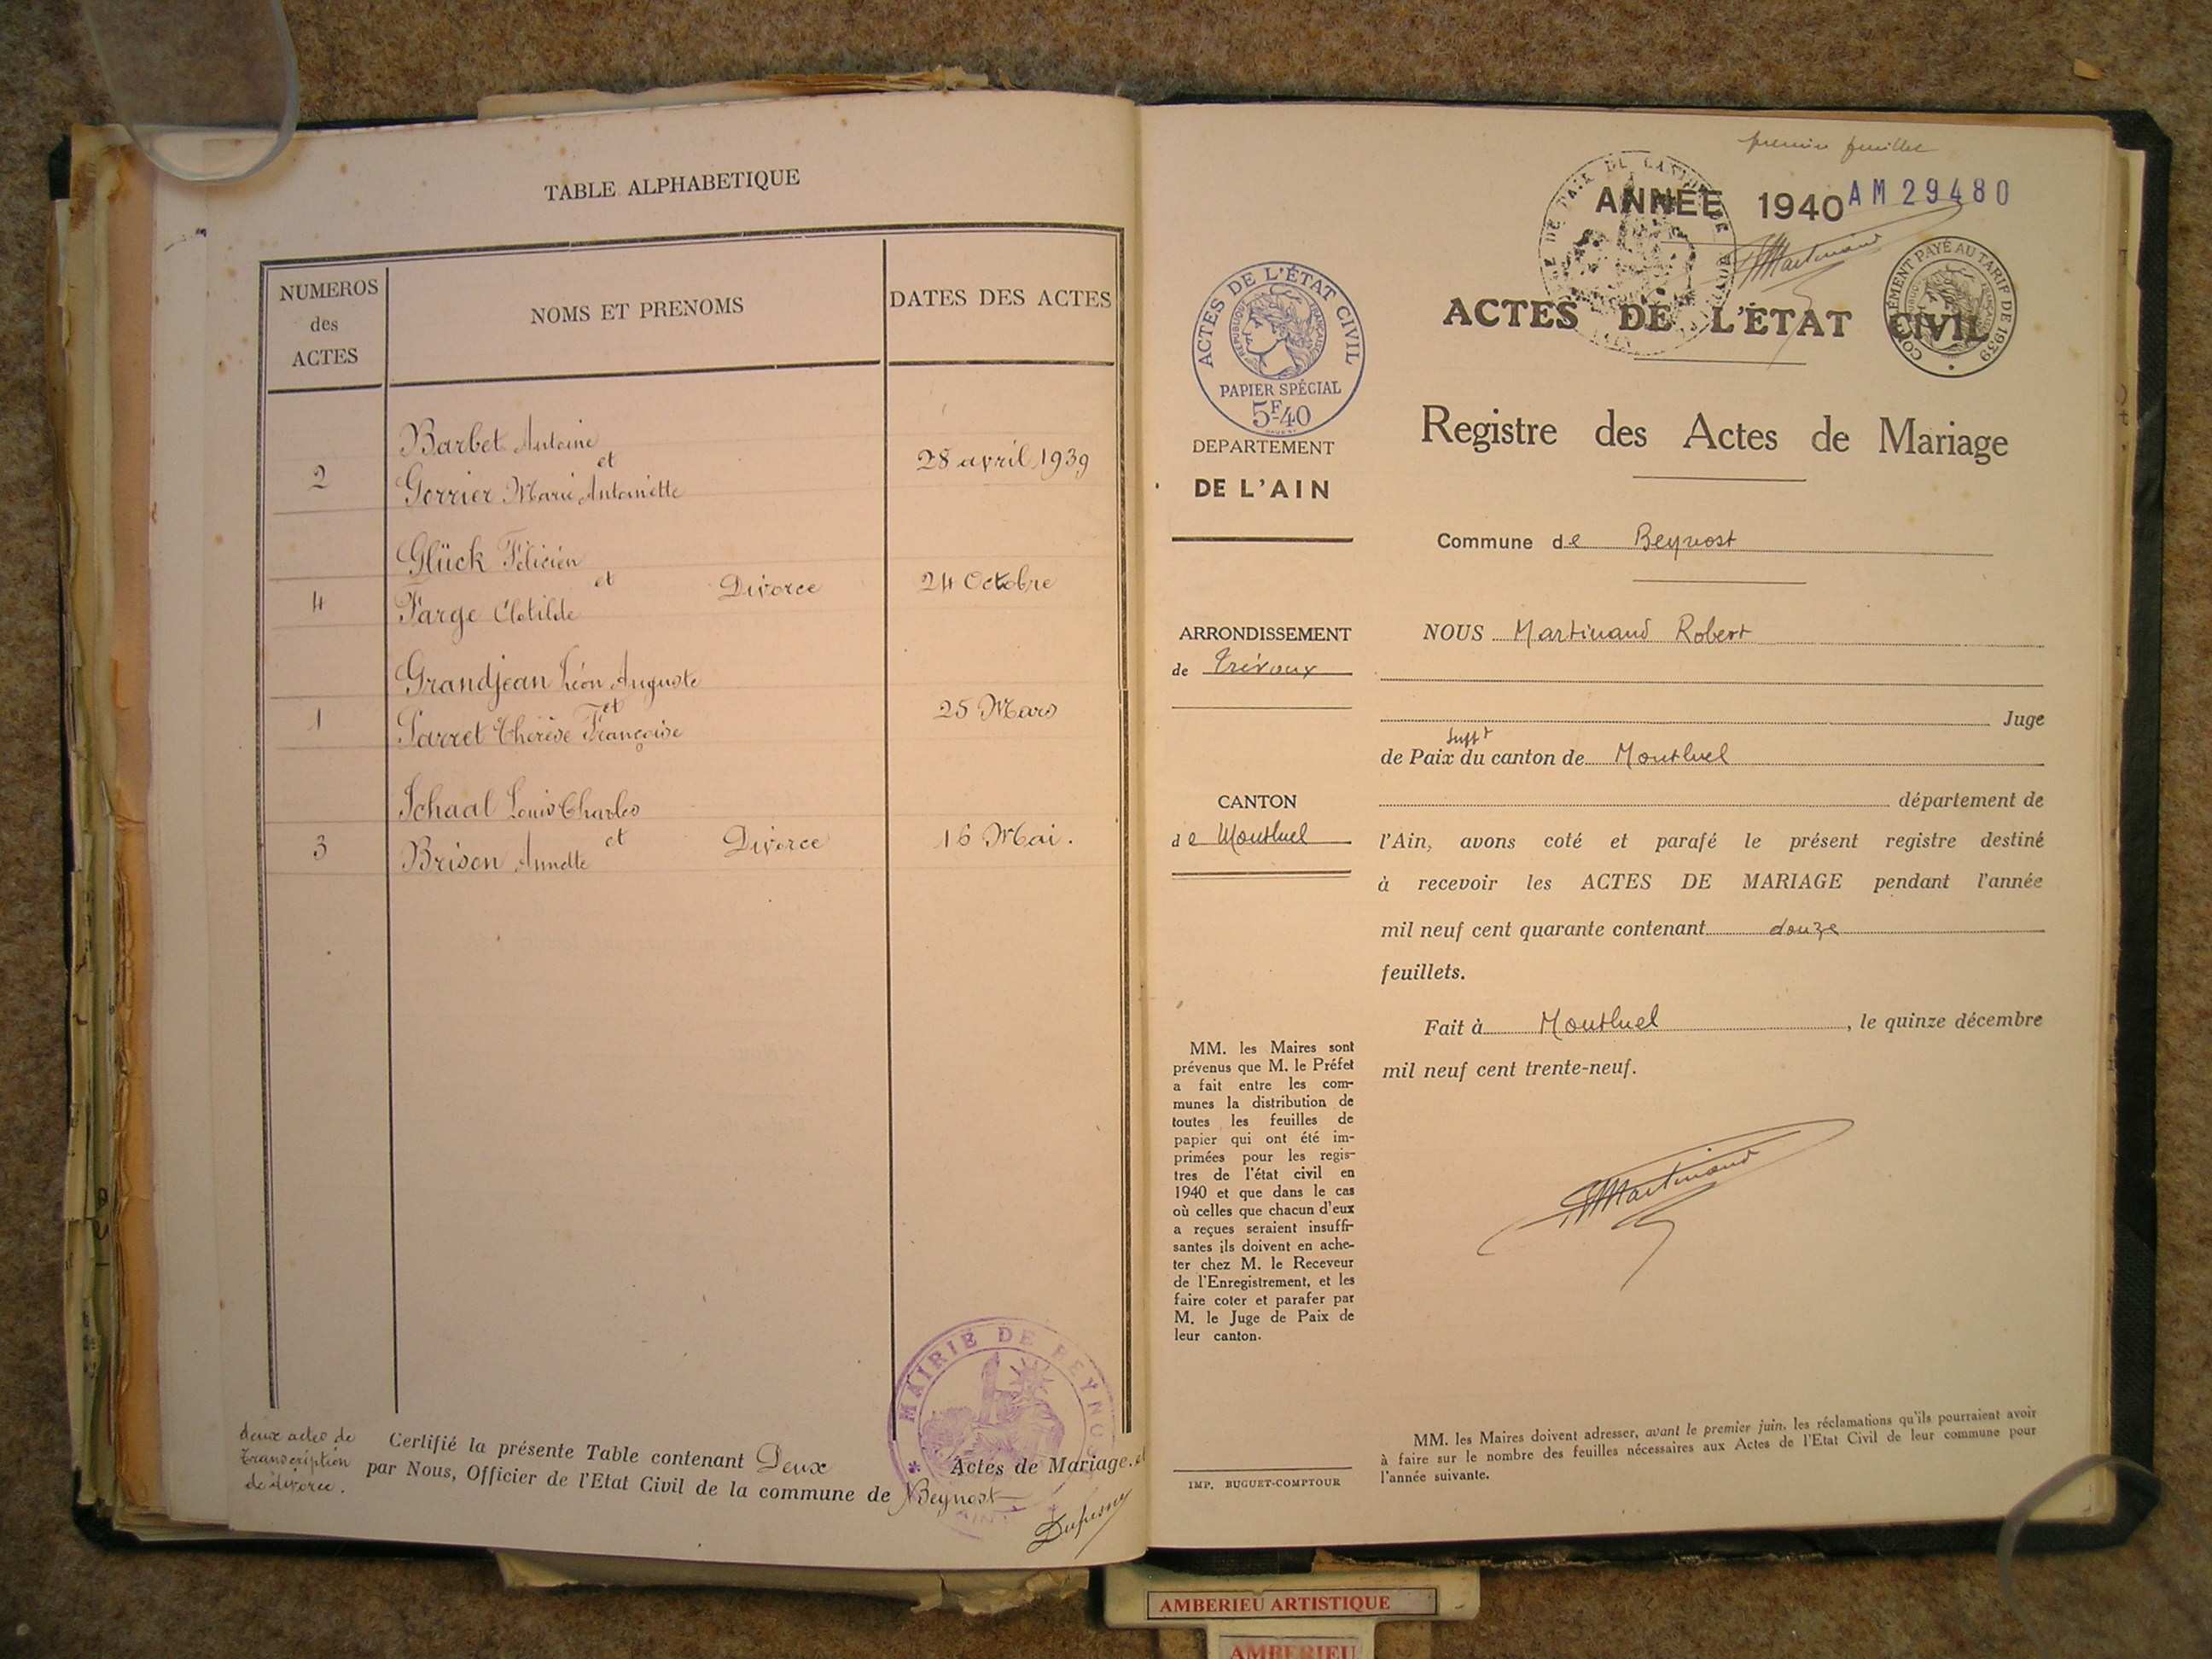 TABLE ALPHABETIQUE
NUMEROS
des
ACTES
NOMS ET PRENOMS
DATES DES ACTES
Barbet Antoine
et
2
28 avril 1939
Gorrier Marie Antoinette
Glück Félicien
et
Divorce
24 Octobre
4
Farge Clotilde
Grandjean Léon Auguste
et
1
25 Mars
Parret Thérèse Françoise
Schaal Louis Charles
et
Divorce
16 Mai.
3
Brison Annette
deux actes de
transcription
de divorce.
Certifié la présente Table contenant Deux Actes de Mariage. et
par Nous, Officier de l'Etat Civil de la commune de Beynost
MAIRIE DE BEYNOST
AIN
premier feuillet
ANNÉE 1940
AM 29480
Martinand
ACTES DE L'ÉTAT CIVIL
COMPLÉMENT PAYÉ AU TARIF DE 1939
ACTES DE L'ÉTAT CIVIL
RÉPUBLIQUE FRANÇAISE
PAPIER SPÉCIAL
5F40
DEPARTEMENT
DE L'AIN
ARRONDISSEMENT
de Trévoux
CANTON
de Montluel
MM. les Maires sont
prévenus que M. le Préfet
a fait entre les com-
munes la distribution de
toutes les feuilles de
papier qui ont été im-
primées pour les regis-
tres de l'état civil en
1940 et que dans le cas
où celles que chacun d'eux
a reçues seraient insuffi-
santes ils doivent en ache-
ter chez M. le Receveur
de l'Enregistrement, et les
faire coter et parafer par
M. le Juge de Paix de
leur canton.
IMP. BUGUET-COMPTOUR
Registre des Actes de Mariage
Commune de Beynost
NOUS Martinand Robert
Juge
Suppt
de Paix du canton de Montluel
département de
l'Ain, avons coté et parafé le présent registre destiné
à recevoir les ACTES DE MARIAGE pendant l'année
mil neuf cent quarante contenant douze
feuillets.
Fait à Montluel, le quinze décembre
mil neuf cent trente-neuf.
Martinand
MM. les Maires doivent adresser, avant le premier juin, les réclamations qu'ils pourraient avoir
à faire sur le nombre des feuilles nécessaires aux Actes de l'Etat Civil de leur commune pour
l'année suivante.
AMBERIEU ARTISTIQUE
AMBERIEU